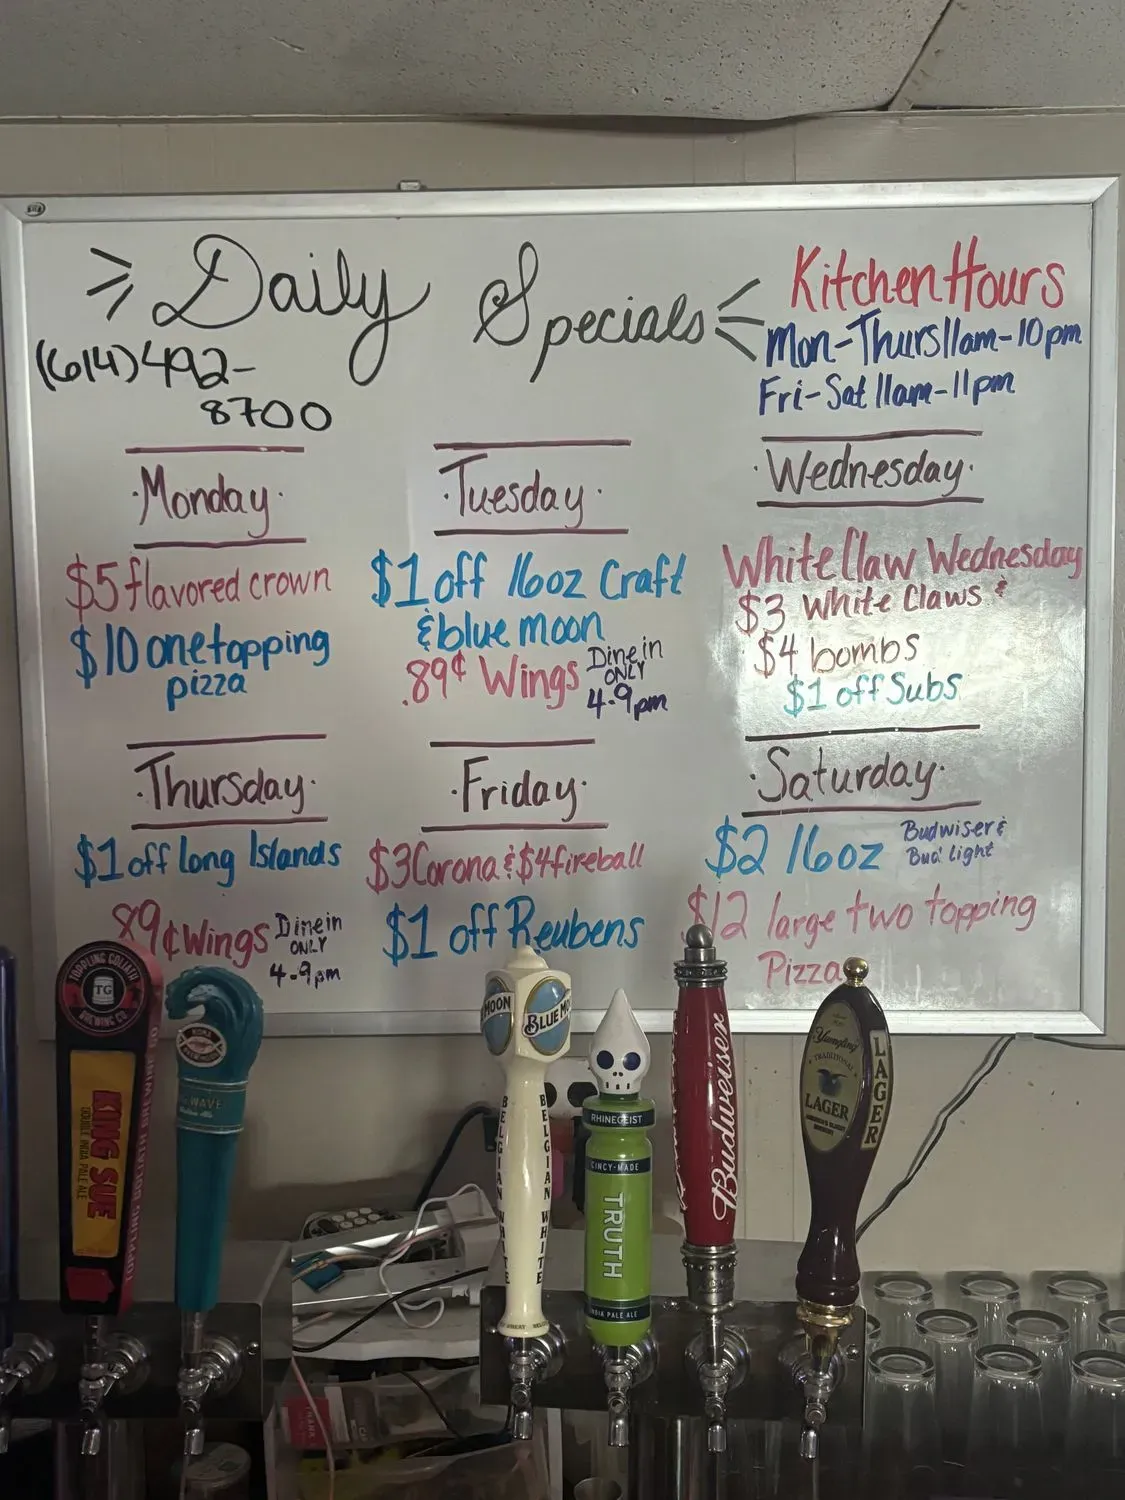 Daily Specials
(614)492-
8700
Kitchen Hours
Mon-Thurs 11am-10pm
Fri-Sat 11am-11pm
·Monday·
$5 flavored crown
$10 one topping
pizza
·Tuesday·
$1 off 16oz Craft
& blue moon
.89¢ Wings
Dine in
ONLY
4-9pm
·Wednesday·
White Claw Wednesday
$3 White Claws &
$4 bombs
$1 off Subs
·Thursday·
$1 off long Islands
89¢ Wings
Dine in
ONLY
4-9pm
·Friday·
$3 Corona & $4 fireball
$1 off Reubens
·Saturday·
$2 16oz
Budwiser &
Bud light
$12 large two topping
Pizza
TOPPLING GOLIATH
TG
BREWING CO
KING SUE
DOUBLE INDIA PALE ALE
TOPPLING GOLIATH BREWING CO
WAVE
MOON
BLUE MO
BELGIAN WHITE
BELGIAN WHITE
RHINEGEIST
CINCY-MADE
TRUTH
INDIA PALE ALE
Budweiser
Yuengling
TRADITIONAL
LAGER
LAGER